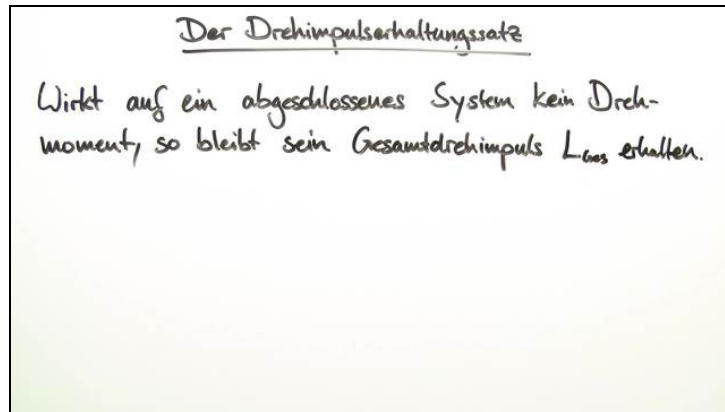 Der Drehimpulserhaltungssatz
Wirkt auf ein abgeschlossenes System kein Dreh-
moment, so bleibt sein Gesamtdrehimpuls L_Ges erhalten.